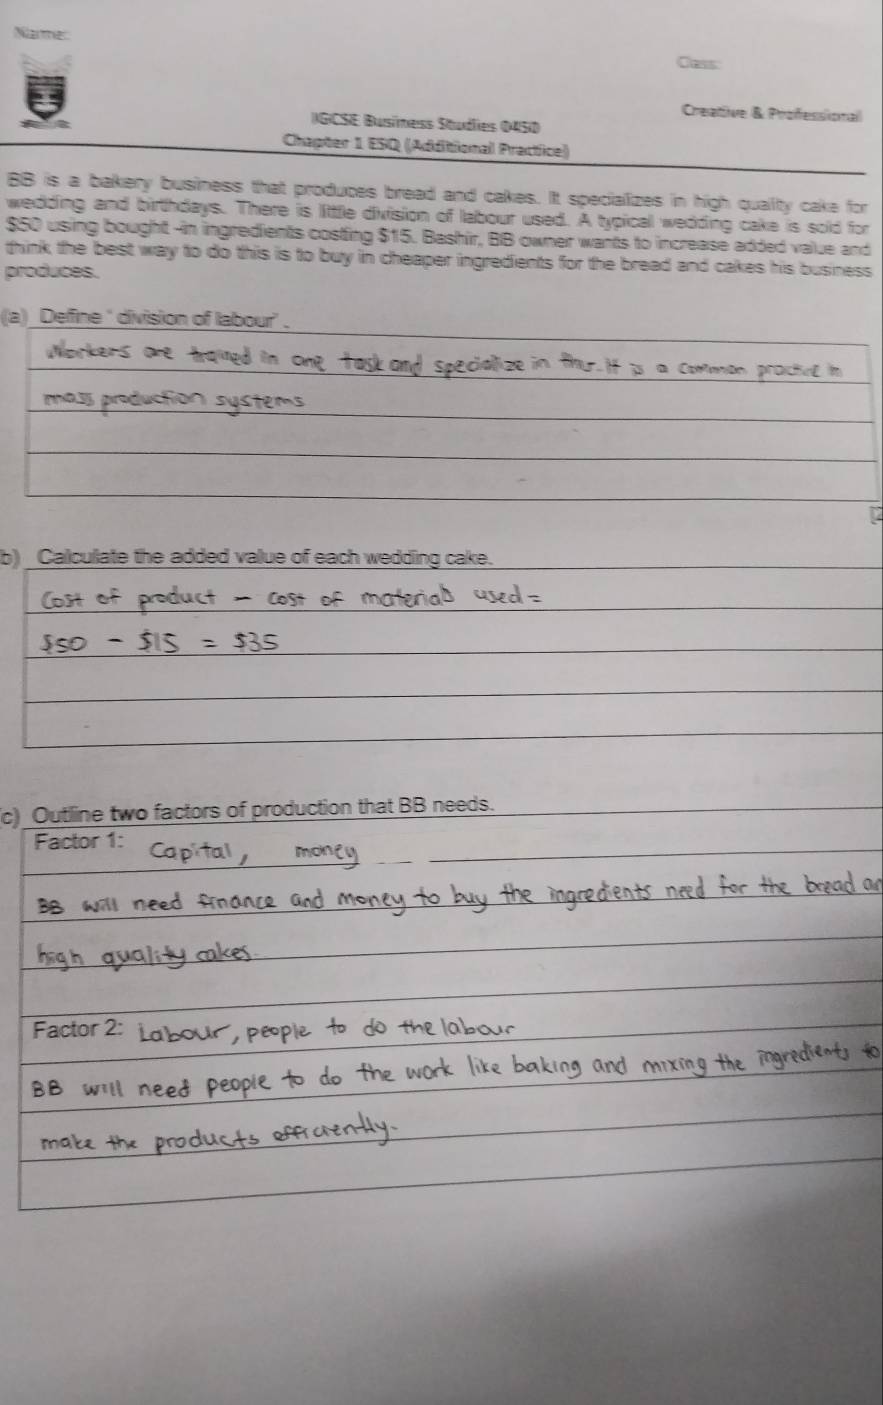 Name:
Class:
Creative & Professional
IGCSE Business Studies 0450
Chapter 1 ESQ (Additional Practice)
BB is a bakery business that produces bread and cakes. It specializes in high quality cake for
wedding and birthdays. There is little division of labour used. A typical wedding cake is sold for
$50 using bought -in ingredients costing $15. Bashir, BB owner wants to increase added value and
think the best way to do this is to buy in cheaper ingredients for the bread and cakes his business
produces.
(a) Define ' division of labour' .
Workers are trained in one task and specialize in this. It is a common practice in
mass production systems
[2
b) Calculate the added value of each wedding cake.
Cost of product - cost of materials used =
$50 - $15 = $35
c) Outline two factors of production that BB needs.
Factor 1: Capital, money
BB will need finance and money to buy the ingredients need for the bread an
high quality cakes.
Factor 2: Labour, people to do the labour
BB will need people to do the work like baking and mixing the ingredients to
make the products efficiently.